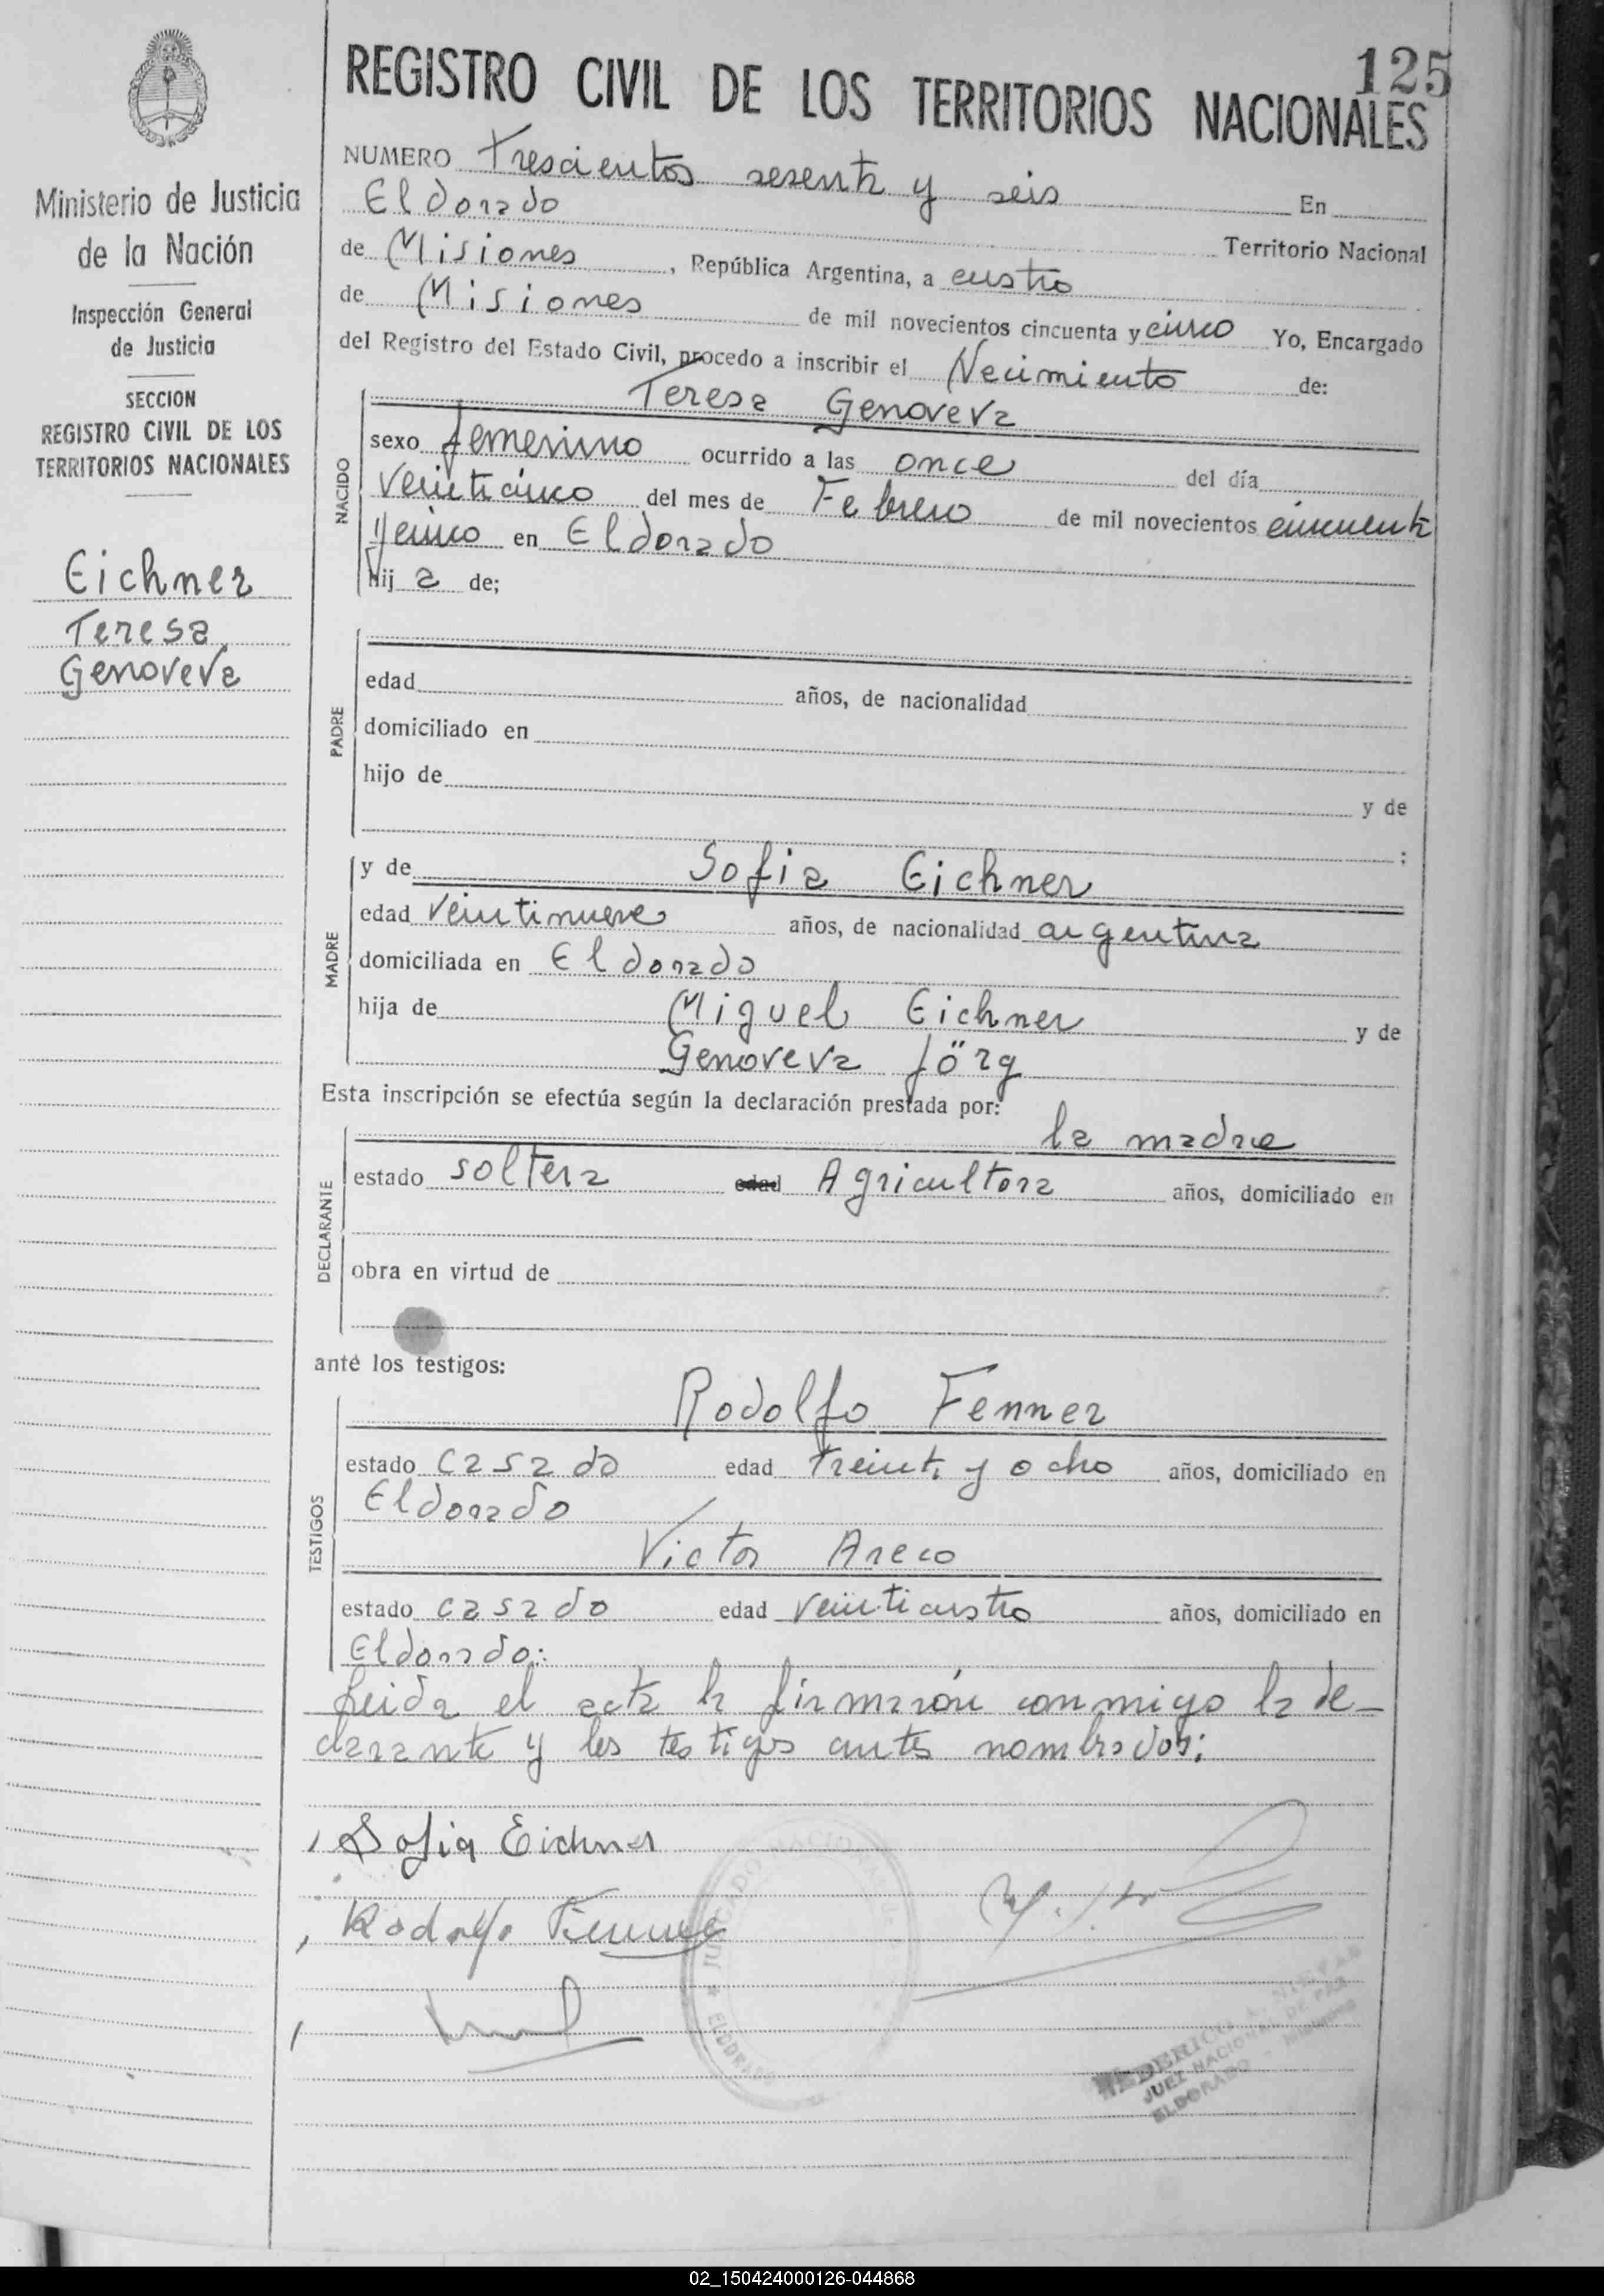 125
REGISTRO CIVIL DE LOS TERRITORIOS NACIONALES
Ministerio de Justicia
de la Nación
Inspección General
de Justicia
SECCION
REGISTRO CIVIL DE LOS
TERRITORIOS NACIONALES
Eichner
Teresa
Genoveva
NUMERO Trescientos sesenta y seis En
Eldorado Territorio Nacional
de Misiones, República Argentina, a cuatro
de Misiones de mil novecientos cincuenta y cinco Yo, Encargado
del Registro del Estado Civil, procedo a inscribir el Nacimiento de:
Teresa Genoveva
NACIDO
sexo femenino ocurrido a las once del día
veinticinco del mes de Febrero de mil novecientos cincuenta
y cinco en Eldorado
hij a de;
PADRE
edad años, de nacionalidad
domiciliado en
hijo de y de
;
MADRE
y de Sofia Eichner
edad veintinueve años, de nacionalidad argentina
domiciliada en Eldorado
hija de Miguel Eichner y de
Genoveva Jörg
Esta inscripción se efectúa según la declaración prestada por:
la madre
DECLARANTE
estado soltera edad Agricultora años, domiciliado en
obra en virtud de
anté los testigos:
Rodolfo Fenner
TESTIGOS
estado casado edad treinta y ocho años, domiciliado en
Eldorado
Victor Areco
estado casado edad veinticuatro años, domiciliado en
Eldorado:
Leida el acta la firmarón conmigo la de-
clarante y los testigos antes nombrados:
Sofia Eichner
Rodolfo Fenner
ELDORADO
JUEZ NACIONAL DE PAZ
ELDORADO - Misiones
02_150424000126-044868